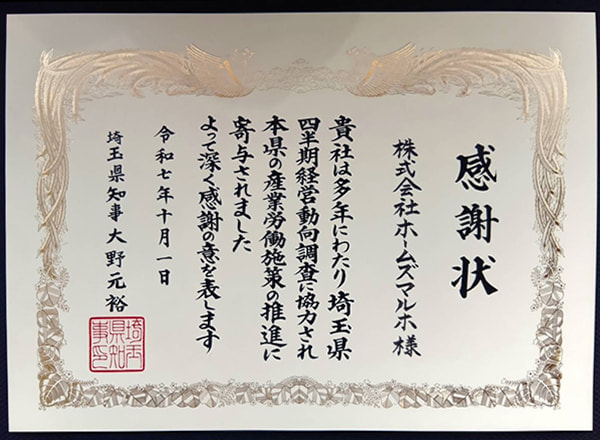 感謝状
株式会社ホームズマルホ 様
貴社は多年にわたり埼玉県
四半期経営動向調査に協力され
本県の産業労働施策の推進に
寄与されました
よって深く感謝の意を表します
令和七年十月一日
埼玉県知事 大野元裕
埼玉
県知
事印